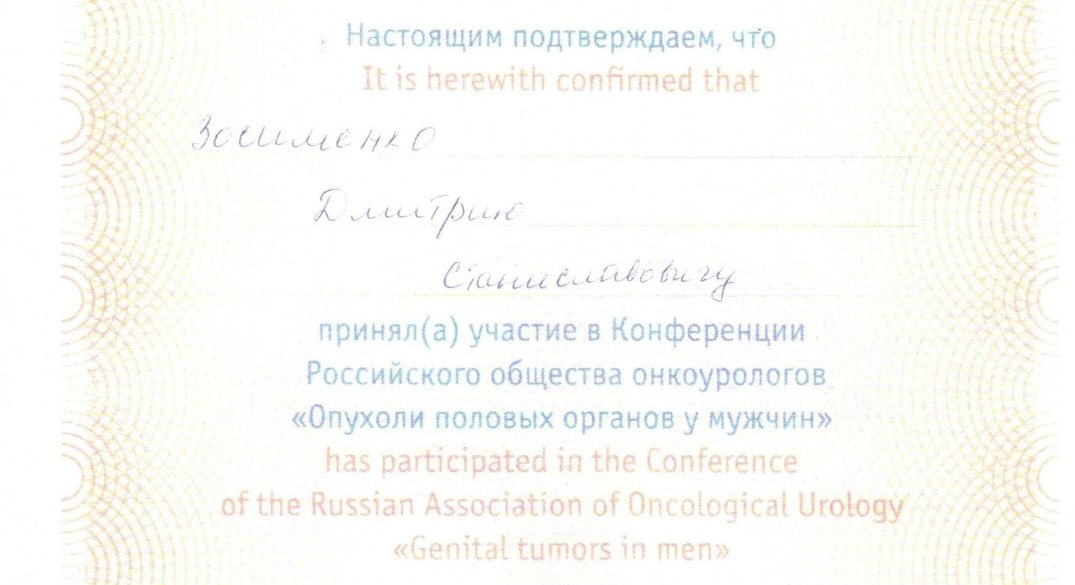 Настоящим подтверждаем, что
It is herewith confirmed that
Зосименко
Дмитрию
Станиславовичу
принял(а) участие в Конференции
Российского общества онкоурологов
«Опухоли половых органов у мужчин»
has participated in the Conference
of the Russian Association of Oncological Urology
«Genital tumors in men»